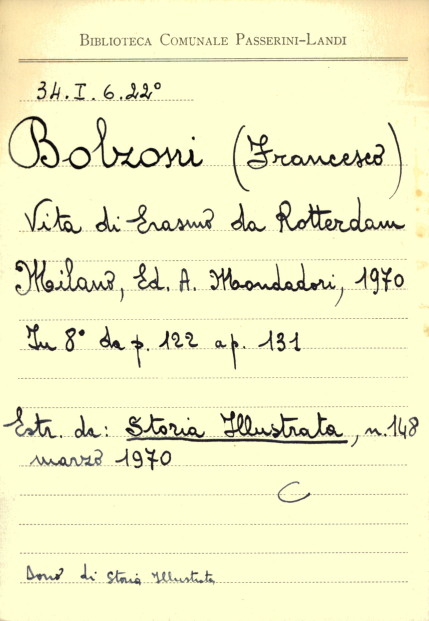 BIBLIOTECA COMUNALE PASSERINI-LANDI
34.I.6.22°
Bolzoni (Francesco)
Vita di Erasmo da Rotterdam
Milano, Ed. A. Mondadori, 1970
In 8° da p. 122 a p. 131
Estr. da: Storia Illustrata, n. 148
marzo 1970
C
Dono di Storia Illustrata